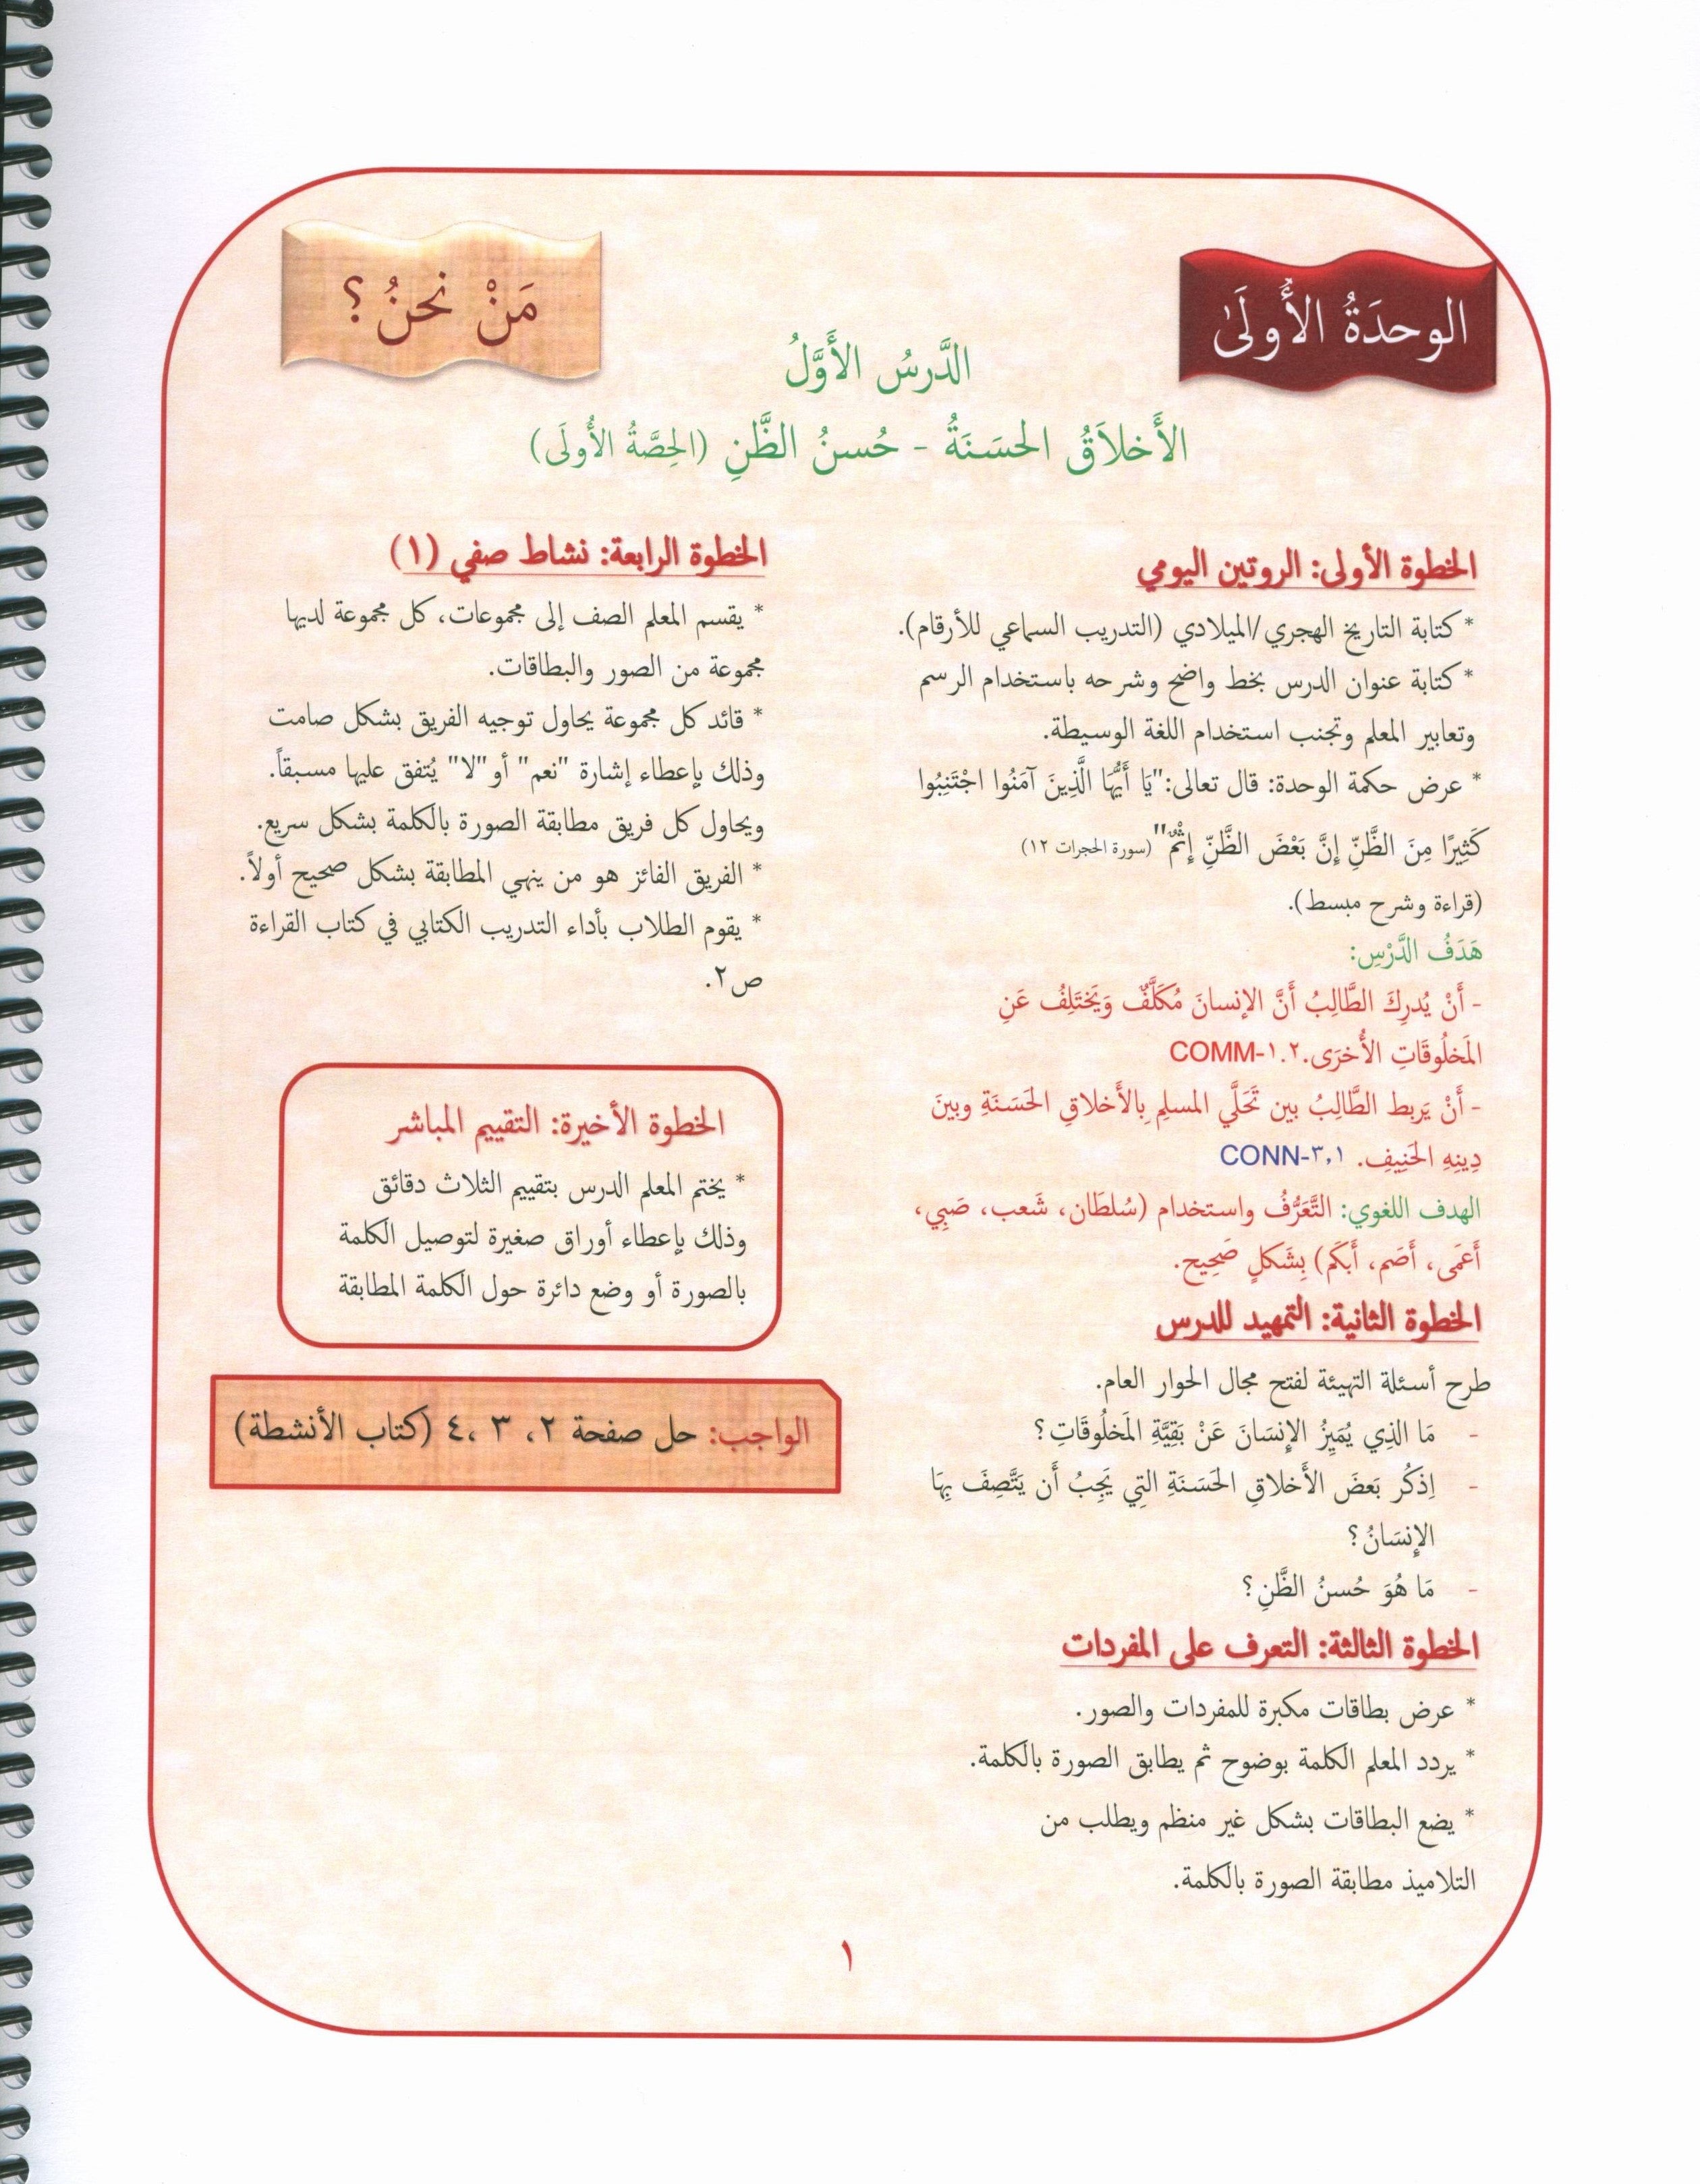 الوحدَةُ الأُولَىٰ
مَنْ نحنُ؟
الدَّرسُ الأَوَّلُ
الأَخلاَقُ الحسَنَةُ - حُسنُ الظَّنِ (الحِصَّةُ الأُولَى)
الخطوة الأولى: الروتين اليومي
* كتابة التاريخ الهجري/الميلادي (التدريب السماعي للأرقام).
* كتابة عنوان الدرس بخط واضح وشرحه باستخدام الرسم
وتعابير المعلم وتجنب استخدام اللغة الوسيطة.
* عرض حكمة الوحدة: قال تعالى:"يَا أَيُّهَا الَّذِينَ آمَنُوا اجْتَنِبُوا
كَثِيرًا مِنَ الظَّنِّ إِنَّ بَعْضَ الظَّنِّ إِثْمٌ" (سورة الحجرات ١٢)
(قراءة وشرح مبسط).
هَدَفُ الدَّرْسِ:
- أَنْ يُدرِكَ الطَّالِبُ أَنَّ الإنسانَ مُكَلَّفٌ وَيَختَلِفُ عَنِ
المَخلُوقَاتِ الأُخرَى.COMM-١.٢
- أَنْ يَربِط الطَّالِبُ بين تَحَلَّي المسلِمِ بِالأَخلاقِ الحَسَنَةِ وبينَ
دِينِهِ الحَنِيفِ. CONN-٣,١
الهدف اللغوي: التَّعَرُّفُ واستخدام (سُلطَان، شَعب، صَبِي،
أَعمَى، أَصَم، أَبكَم) بِشَكلٍ صَحِيح.
الخطوة الثانية: التمهيد للدرس
طرح أسئلة التهيئة لفتح مجال الحوار العام.
- مَا الذِي يُمَيِزُ الإِنسَانَ عَنْ بَقِيَّةِ المَخلُوقَاتِ؟
- اِذكُر بَعضَ الأَخلاقِ الحَسَنَةِ التِي يَجِبُ أَن يَتَّصِفَ بِهَا
الإِنسَانُ؟
- مَا هُوَ حُسنُ الظَّنِ؟
الخطوة الثالثة: التعرف على المفردات
* عرض بطاقات مكبرة للمفردات والصور.
* يردد المعلم الكلمة بوضوح ثم يطابق الصورة بالكلمة.
* يضع البطاقات بشكل غير منظم ويطلب من
التلاميذ مطابقة الصورة بالكلمة.
الخطوة الرابعة: نشاط صفي (١)
* يقسم المعلم الصف إلى مجموعات، كل مجموعة لديها
مجموعة من الصور والبطاقات.
* قائد كل مجموعة يحاول توجيه الفريق بشكل صامت
وذلك بإعطاء إشارة "نعم" أو"لا" يُتفق عليها مسبقاً.
ويحاول كل فريق مطابقة الصورة بالكلمة بشكل سريع.
* الفريق الفائز هو من ينهي المطابقة بشكل صحيح أولاً.
* يقوم الطلاب بأداء التدريب الكتابي في كتاب القراءة
ص٢.
الخطوة الأخيرة: التقييم المباشر
* يختم المعلم الدرس بتقييم الثلاث دقائق
وذلك بإعطاء أوراق صغيرة لتوصيل الكلمة
بالصورة أو وضع دائرة حول الكلمة المطابقة
الواجب: حل صفحة ٢، ٣ ،٤ (كتاب الأنشطة)
١